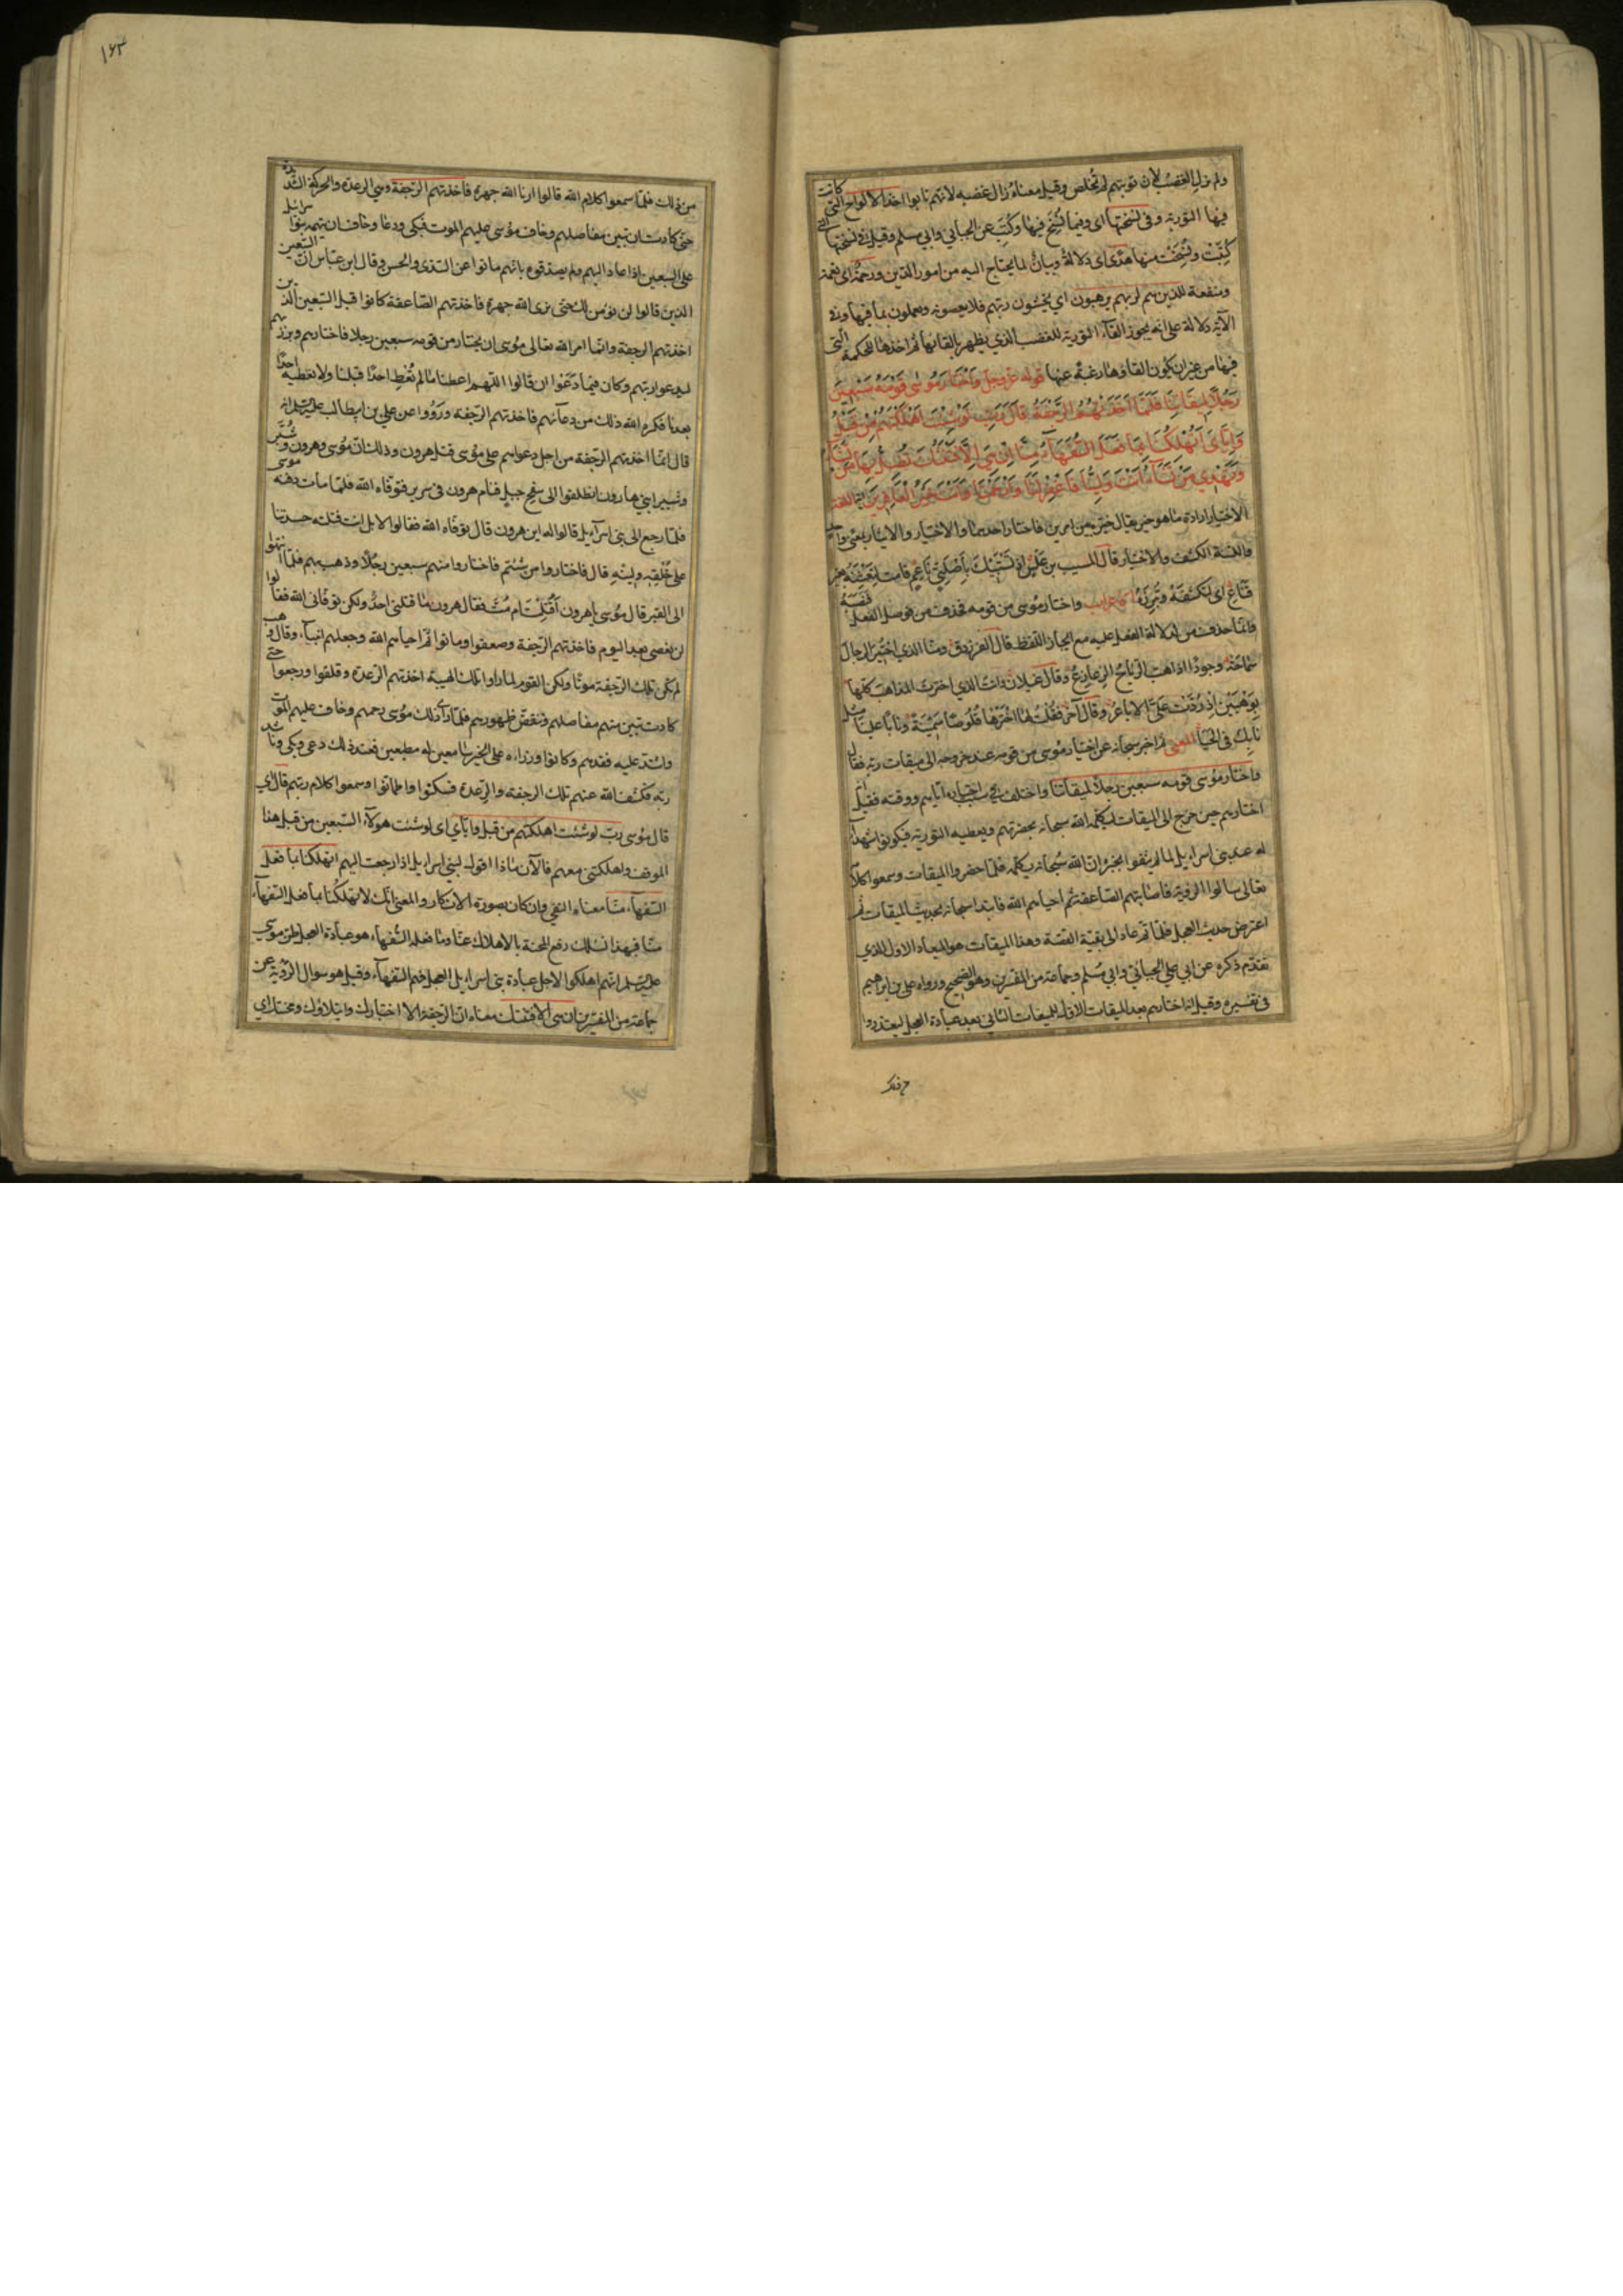 ولم يزل الغضب لان توبتهم لم تخلص وقيل معناه زال غضبه لانهم تابوا اخذ الالواح التي كانت
فيها التورية وفي نسختها اى وفيما نسخ فيها وكتب عن الجبائي وابي مسلم وقيل وفي نسختها التي
كتبت ونسخت منها هدى اى دلالة وبيان لما يحتاج اليه من امور الدين ورحمة اى نعمة
ومنفعة للذين هم لربهم يرهبون اى يخشون ربهم فلا يعصونه ويعملون بما فيها وفي
الآية دلالة على انه يجوز القآء التورية للغضب الذي يظهر بالقائها ثم اخذها للحكمة التي
فيها من غير ان يكون القاؤها رغبة عنها قوله عز وجل واختار موسى قومه سبعين
رجلا لميقاتنا فلما اخذتهم الرجفة قال رب لو شئت اهلكتهم من قبل
واياى اتهلكنا بما فعل السفهآء منا ان هي الا فتنتك تضل بها من تشآء
وتهدي من تشآء انت ولينا فاغفر لنا وارحمنا وانت خير الغافرين اللغة
الاختيار ارادة ما هو خير يقال خير بين امرين فاختار احدهما والاختيار والايثار بمعنى واحد
والفتنة الكشف والاختبار قال المسيب بن علس اذ تستبيك باصلتي ناعم قامت لتفتنه بغير
قناع اى لتكشفه وتبرزه الاعراب واختار موسى من قومه فحذف من فوصل الفعل فنصبه
وانما حذف من لدلالة الفعل عليه مع ايجاز اللفظ قال الفرزدق ومنا الذي اختير الرجال
سماحة وجودا اذا هب الرياح الزعازع وقال غيلان وانت الذي اخترت المذاهب كلها
بوهبين اذ ردت على الاباعر وقال آخر فقلت له اخترها قلوصا سمينة ونابا علينا مثل
نابك في الحيا المعنى ثم اخبر سبحانه عن اختيار موسى من قومه عند خروجه الى ميقات ربه فقال
واختار موسى قومه سبعين رجلا لميقاتنا واختلف في سبب اختياره اياهم ووقته فقيل انه
اختارهم حين خرج الى الميقات ليكلمه الله سبحانه بحضرتهم ويعطيه التورية فيكونوا شهدآء
له عند بني اسرايل لما لم يثقوا بخبره ان الله سبحانه يكلمه فلما حضروا الميقات وسمعوا كلامه
تعالى سالوا الرؤية فاصابتهم الصاعقة ثم احياهم الله فابتدا سبحانه بحديث الميقات ثم
اعترض حديث العجل فلما تم عاد الى بقية القصة وهذا الميقات هو الميعاد الاول الذي
تقدم ذكره عن ابي علي الجبائي وابي مسلم وجماعة من المفسرين وهو الصحيح ورواه علي بن ابراهيم
في تفسيره وقيل انه اختارهم بعد الميقات الاول للميقات الثاني بعد عبادة العجل ليعتذروا
١٦٣
من ذلك فلما سمعوا كلام الله قالوا ارنا الله جهرة فاخذتهم الرجفة وهي الرعدة والحركة الشديدة
حتى كادت ان تبين مفاصلهم وخاف موسى عليهم الموت فبكى ودعا وخاف ان يتهمه بنوا سرائيل
على السبعين اذا عاد اليهم ولم يصدقوه بانهم ماتوا عن السدي والحسن وقال ابن عباس ان السبعين
الذين قالوا لن نؤمن لك حتى نرى الله جهرة فاخذتهم الصاعقة كانوا قبل السبعين الذين
اخذتهم الرجفة وانما امر الله تعالى موسى ان يختار من قومه سبعين رجلا فاختارهم وبرز بهم
ليدعوا ربهم وكان فيما دعوا ان قالوا اللهم اعطنا ما لم تعط احدا قبلنا ولا تعطيه احدا
بعدنا فكره الله ذلك من دعآئهم فاخذتهم الرجفة ورووا عن علي بن ابيطالب عليه السلام انه
قال انما اخذتهم الرجفة من اجل دعواهم على موسى قتل هرون وذلك ان موسى وهرون وشبر
وشبير ابني هارون انطلقوا الى سفح جبل فنام هرون في سرير فتوفاه الله فلما مات دفنه موسى
فلما رجع الى بني اسرآئيل قالوا له اين هرون قال توفاه الله فقالوا لا بل انت قتلته حسدتنا
على خلقه ولينه قال فاختاروا من شئتم فاختاروا منهم سبعين رجلا وذهب بهم فلما انتهوا
الى القبر قال موسى ياهرون اقتلت ام مت فقال هرون ما قتلني احد ولكن توفاني الله فقالوا
لن نعصى بعد اليوم فاخذتهم الرجفة وصعقوا وماتوا ثم احياهم الله وجعلهم انبيآء وقال وهب
لم تكن تلك الرجفة موتا ولكن القوم لما راوا تلك الهيبة اخذتهم الرعدة وقلقوا ورجعوا حتى
كادت تبين منهم مفاصلهم وتنقض ظهورهم فلما رآى ذلك موسى رحمهم وخاف عليهم الموت
واشتد عليه فقدهم وكانوا وزراءه على الخير سامعين له مطيعين فعند ذلك دعى وبكى وناشد
ربه فكشف الله عنهم تلك الرجفة والرعدة فسكنوا واطمانوا وسمعوا كلام ربهم قال اى
قال موسى رب لو شئت اهلكتهم من قبل واياى اى لو شئت هولآء السبعين من قبل هذا
الموقف واهلكتني معهم فالآن ماذا اقول لبني اسرايل اذا رجعت اليهم اتهلكنا بما فعل
السفهآء منا معناه النفي وان كان بصورة الانكار والمعنى انك لا تهلكنا بما فعل السفهآء
منا فبهذا نسئلك رفع المحنة بالاهلاك عنا وما فعله السفهآء هو عبادة العجل ظن موسى
عليه السلم انهم اهلكوا لاجل عبادة بني اسرايل العجل فهم السفهآء وقيل هو سوال الرؤية عن
جماعة من المفسرين ان هي الا فتنتك معناه ان الرجفة الا اختبارك وابتلاؤك ومحنتك اى